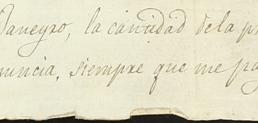 Janeyro, la cantidad dela p
nuncia, siempre que me pa